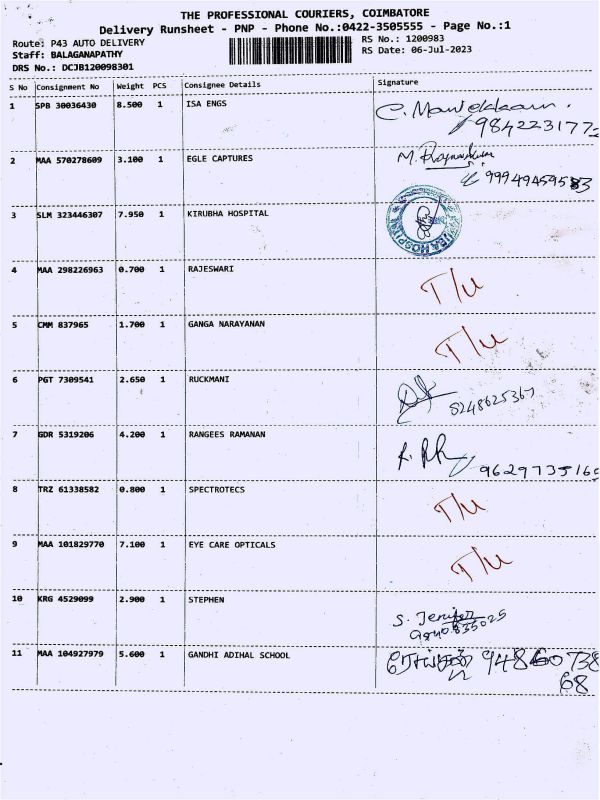 THE PROFESSIONAL COURIERS, COIMBATORE
Delivery Runsheet - PNP - Phone No.:0422-3505555 - Page No.:1
Route: P43 AUTO DELIVERY RS No.: 1200983
Staff: BALAGANAPATHY RS Date: 06-Jul-2023
DRS No.: DCJB120098301
S No Consignment No Weight PCS Consignee Details Signature
1 SPB 30036430 8.500 1 ISA ENGS
984223177
2 MAA 570278609 3.100 1 EGLE CAPTURES M.
99949459583
3 SLM 323446307 7.950 1 KIRUBHA HOSPITAL
HOSPITAL
4 MAA 298226963 0.700 1 RAJESWARI T/U
5 CMM 837965 1.700 1 GANGA NARAYANAN T/U
6 PGT 7309541 2.650 1 RUCKMANI
8248625367
7 GDR 5319206 4.200 1 RANGEES RAMANAN
962973516
8 TRZ 61338582 0.800 1 SPECTROTECS T/U
9 MAA 101829770 7.100 1 EYE CARE OPTICALS T/U
10 KRG 4529099 2.900 1 STEPHEN S. Jenifer
11 MAA 104927979 5.600 1 GANDHI ADIHAL SCHOOL
68